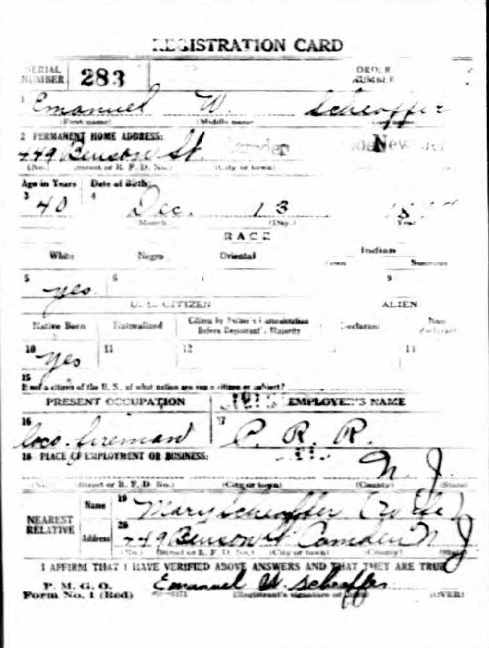 REGISTRATION CARD
SERIAL NUMBER 283 ORDER NUMBER
1 Emanuel W. Scheoffer
(First name) (Middle name)
2 PERMANENT HOME ADDRESS:
749 Benson St. Camden New
(No.) (Street or R. F. D. No.) (City or town)
Age in Years Date of Birth
3 40 4 Dec. 13 18
Month (Day) Year
RACE
White Negro Oriental Indian
5 yes 6 9
U. S. CITIZEN ALIEN
Native Born Naturalized Citizen by Father's Naturalization Before Registrant's Majority Declarant Non-declarant
10 yes 11 12
15
If not a citizen of the U. S., of what nation are you a citizen or subject?
PRESENT OCCUPATION EMPLOYER'S NAME
16 loco. fireman 17 P. R. R.
18 PLACE OF EMPLOYMENT OR BUSINESS:
N. J.
(No.) (Street or R. F. D. No.) (City or town) (County) (State)
NEAREST RELATIVE
Name 19 Mary Scheoffer (wife)
Address 20 749 Benson St Camden N J
(No.) (Street or R. F. D. No.) (City or town) (County) (State)
I AFFIRM THAT I HAVE VERIFIED ABOVE ANSWERS AND THAT THEY ARE TRUE
P. M. G. O.
Form No. 1 (Red) Emanuel W. Scheoffer
(Registrant's signature or mark) (OVER)